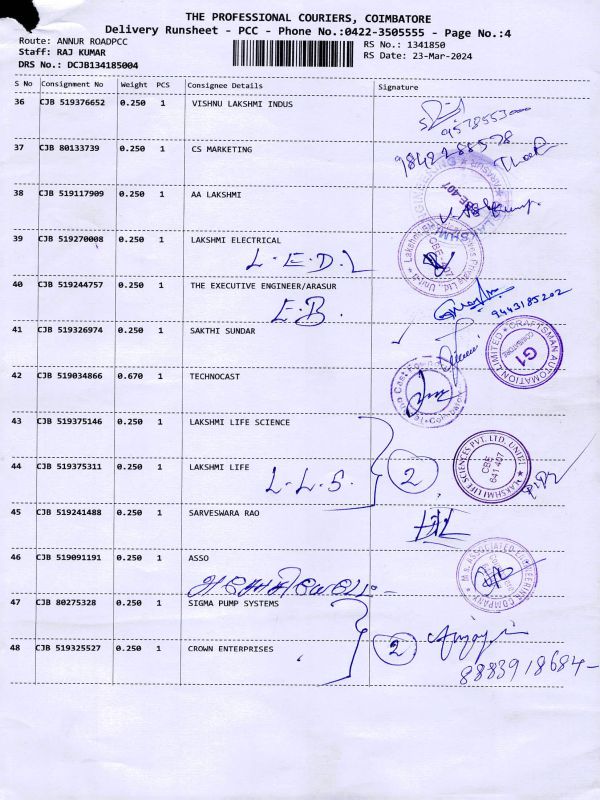 THE PROFESSIONAL COURIERS, COIMBATORE
Delivery Runsheet - PCC - Phone No.:0422-3505555 - Page No.:4
Route: ANNUR ROADPCC
RS No.: 1341850
Staff: RAJ KUMAR
RS Date: 23-Mar-2024
DRS No.: DCJB134185004
S No Consignment No Weight PCS Consignee Details Signature
36 CJB 519376652 0.250 1 VISHNU LAKSHMI INDUS
9578553000
37 CJB 80133739 0.250 1 CS MARKETING
38 CJB 519117909 0.250 1 AA LAKSHMI
39 CJB 519270008 0.250 1 LAKSHMI ELECTRICAL
L.E.D.L
40 CJB 519244757 0.250 1 THE EXECUTIVE ENGINEER/ARASUR
E.B.
9443185202
41 CJB 519326974 0.250 1 SAKTHI SUNDAR
CRAFTSMAN AUTOMATION LIMITED
G1
COIMBATORE
42 CJB 519034866 0.670 1 TECHNOCAST
43 CJB 519375146 0.250 1 LAKSHMI LIFE SCIENCE
LAKSHMI LIFE SCIENCES PVT. LTD. UNIT-I
CBE
641 407
44 CJB 519375311 0.250 1 LAKSHMI LIFE
L.L.S.
2
45 CJB 519241488 0.250 1 SARVESWARA RAO
46 CJB 519091191 0.250 1 ASSO
M/S. ASSOCIATED ENGINEERING COMPANY
47 CJB 80275328 0.250 1 SIGMA PUMP SYSTEMS
2
48 CJB 519325527 0.250 1 CROWN ENTERPRISES
8883918684-